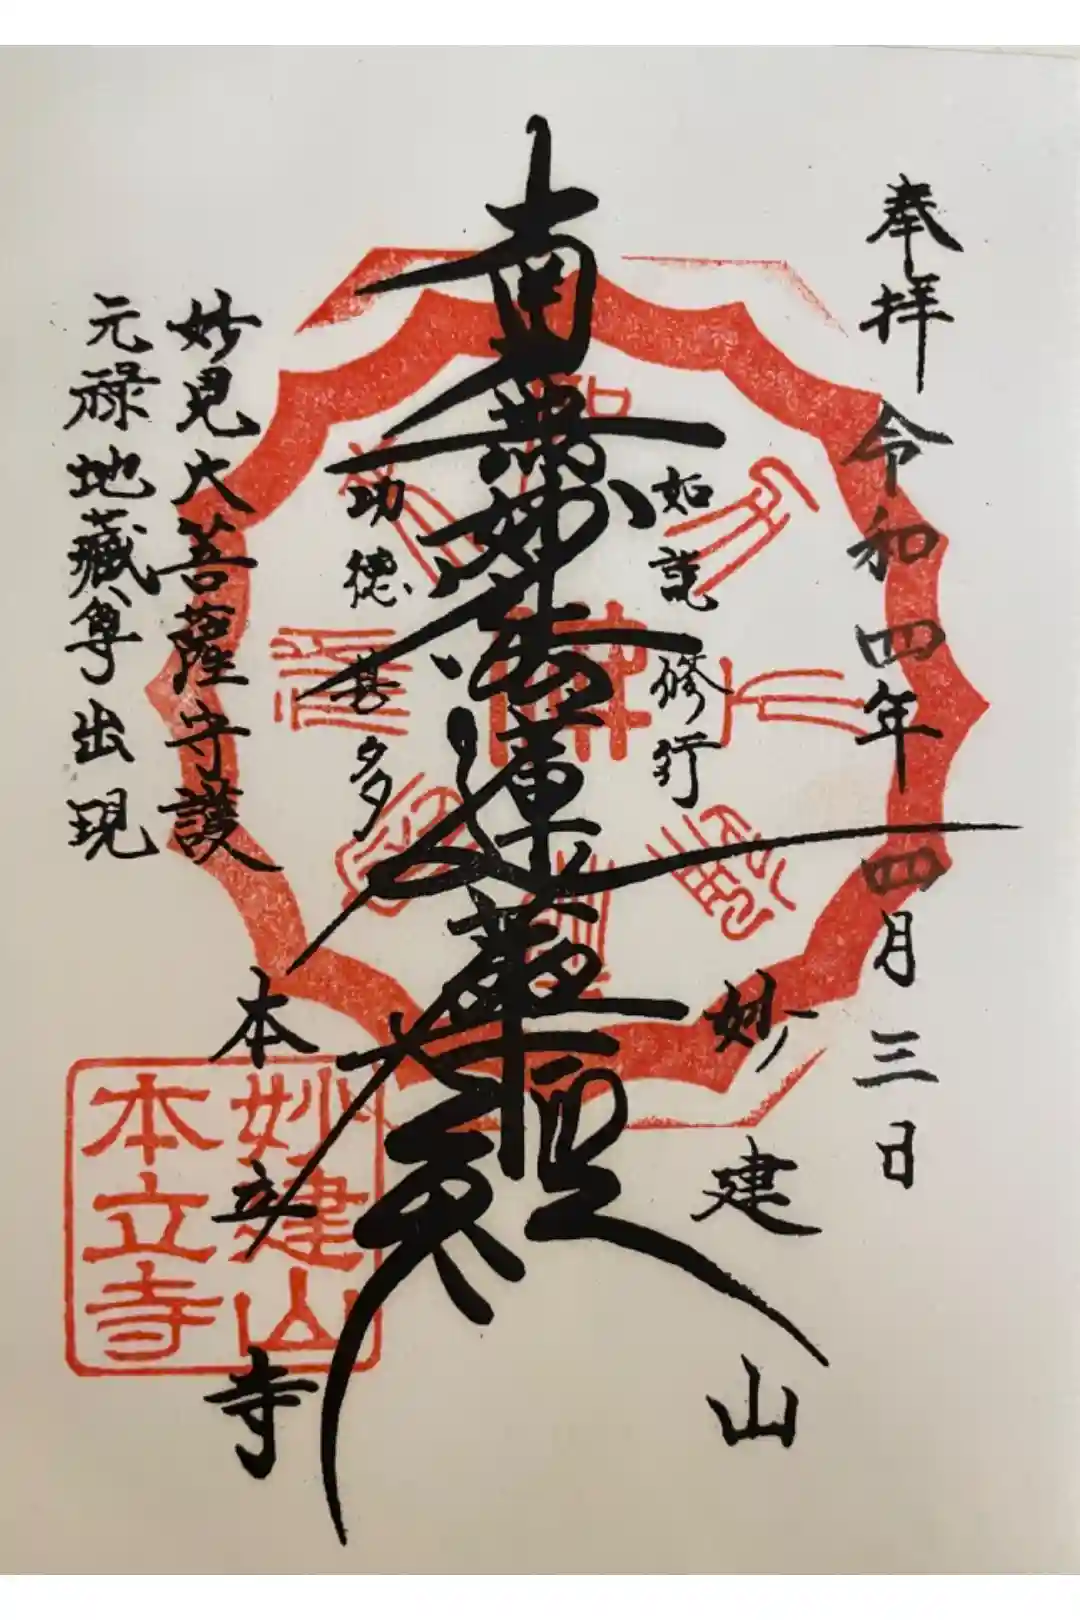 奉拝
令和四年四月三日
如説修行
妙建山
南無妙法蓮華経
功徳甚多
本立寺
妙見大菩薩守護
元禄地蔵尊出現
妙建山
本立寺